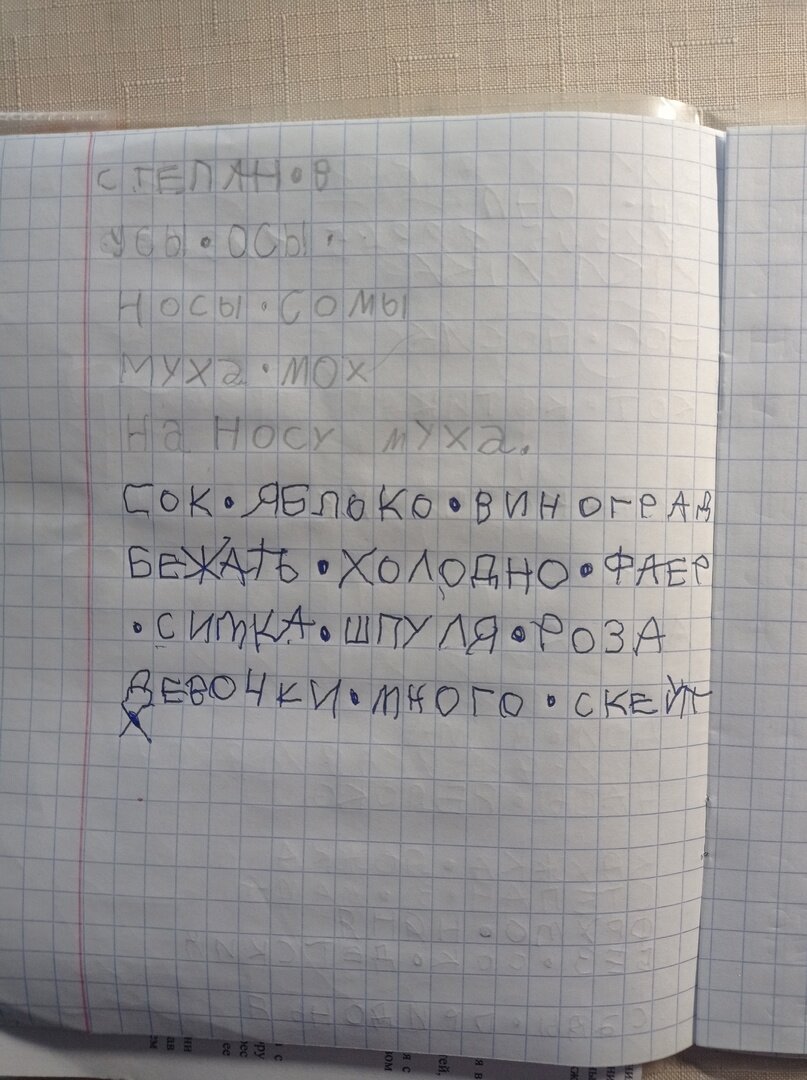 СТЕПАН•В
УСЫ•ОСЫ.
НОСЫ•СОМЫ
МУХа•МОХ
На НОСУ МУХа.
СОК•ЯБЛОКО•ВИНОГРАД
БЕЖАТЬ•ХОЛОДНО•ФАЕР
•СИМКА•ШПУЛЯ•РОЗА
ДЕВОЧКИ•МНОГО•СКЕЙТ